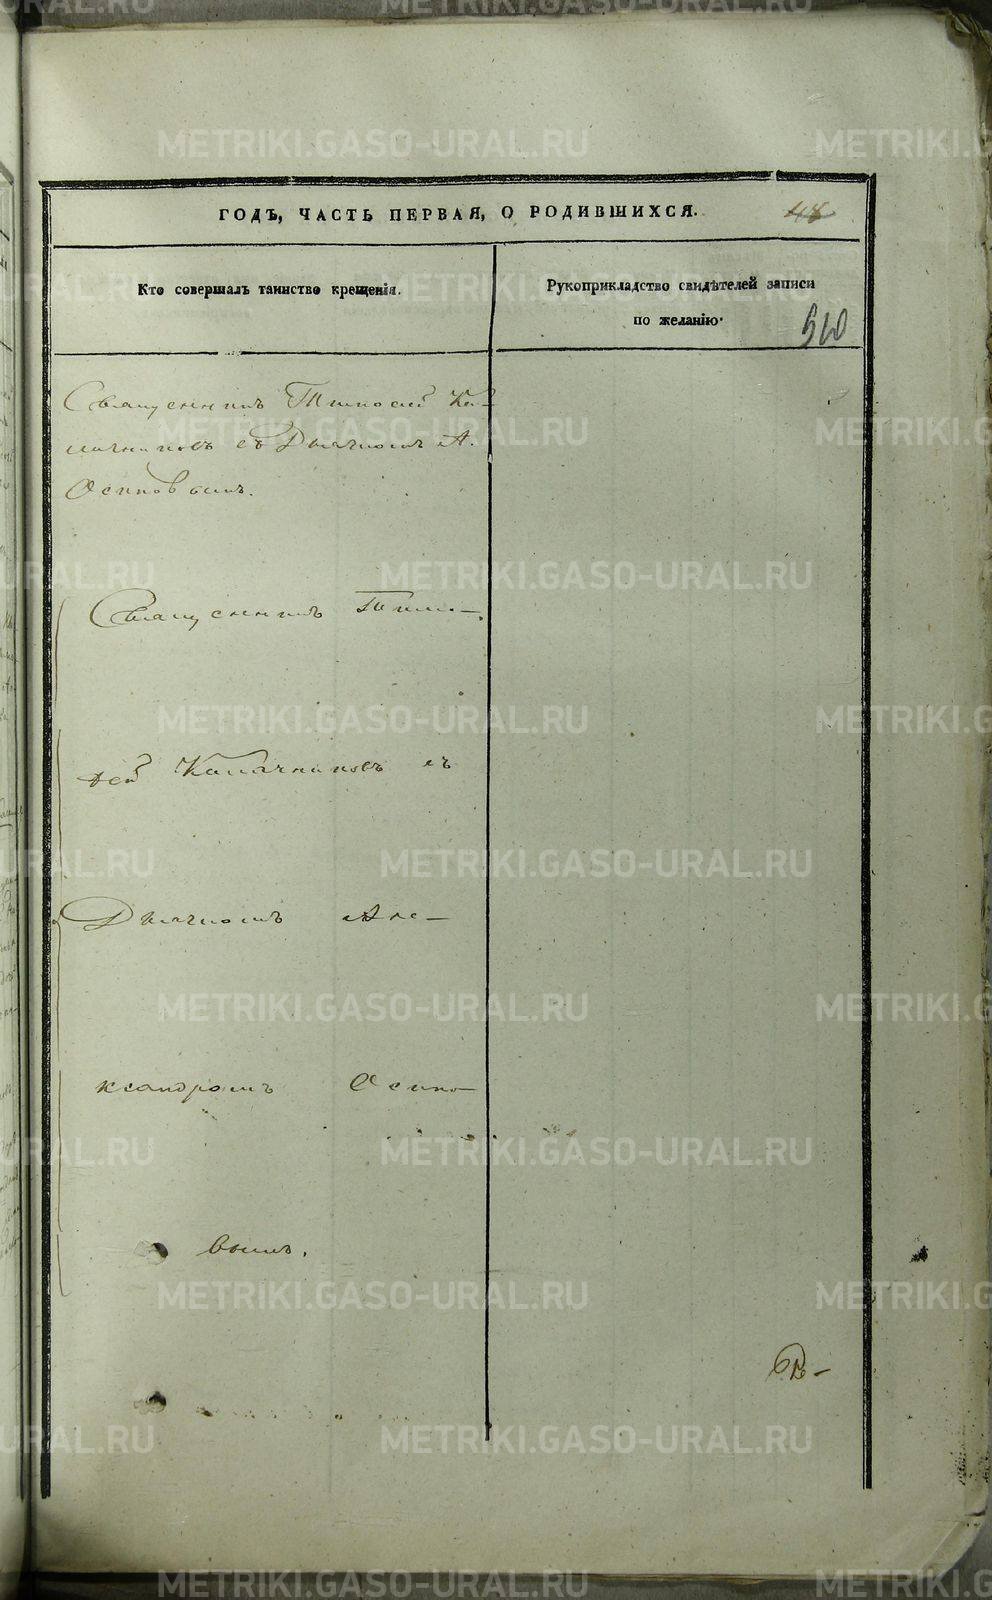 ГОДЪ, ЧАСТЬ ПЕРВАЯ, О РОДИВШИХСЯ. 48
Кто совершалъ таинство крещенія.
Рукоприкладство свидѣтелей записи
по желанію.
510
Священникъ Тимофей Ка-
лачниковъ съ Дьячкомъ А.
Осиповымъ.
Священникъ Тимо-
фей Калачниковъ съ
Дьячкомъ Але-
ксандромъ Осипо-
вымъ.
METRIKI.GASO-URAL.RU